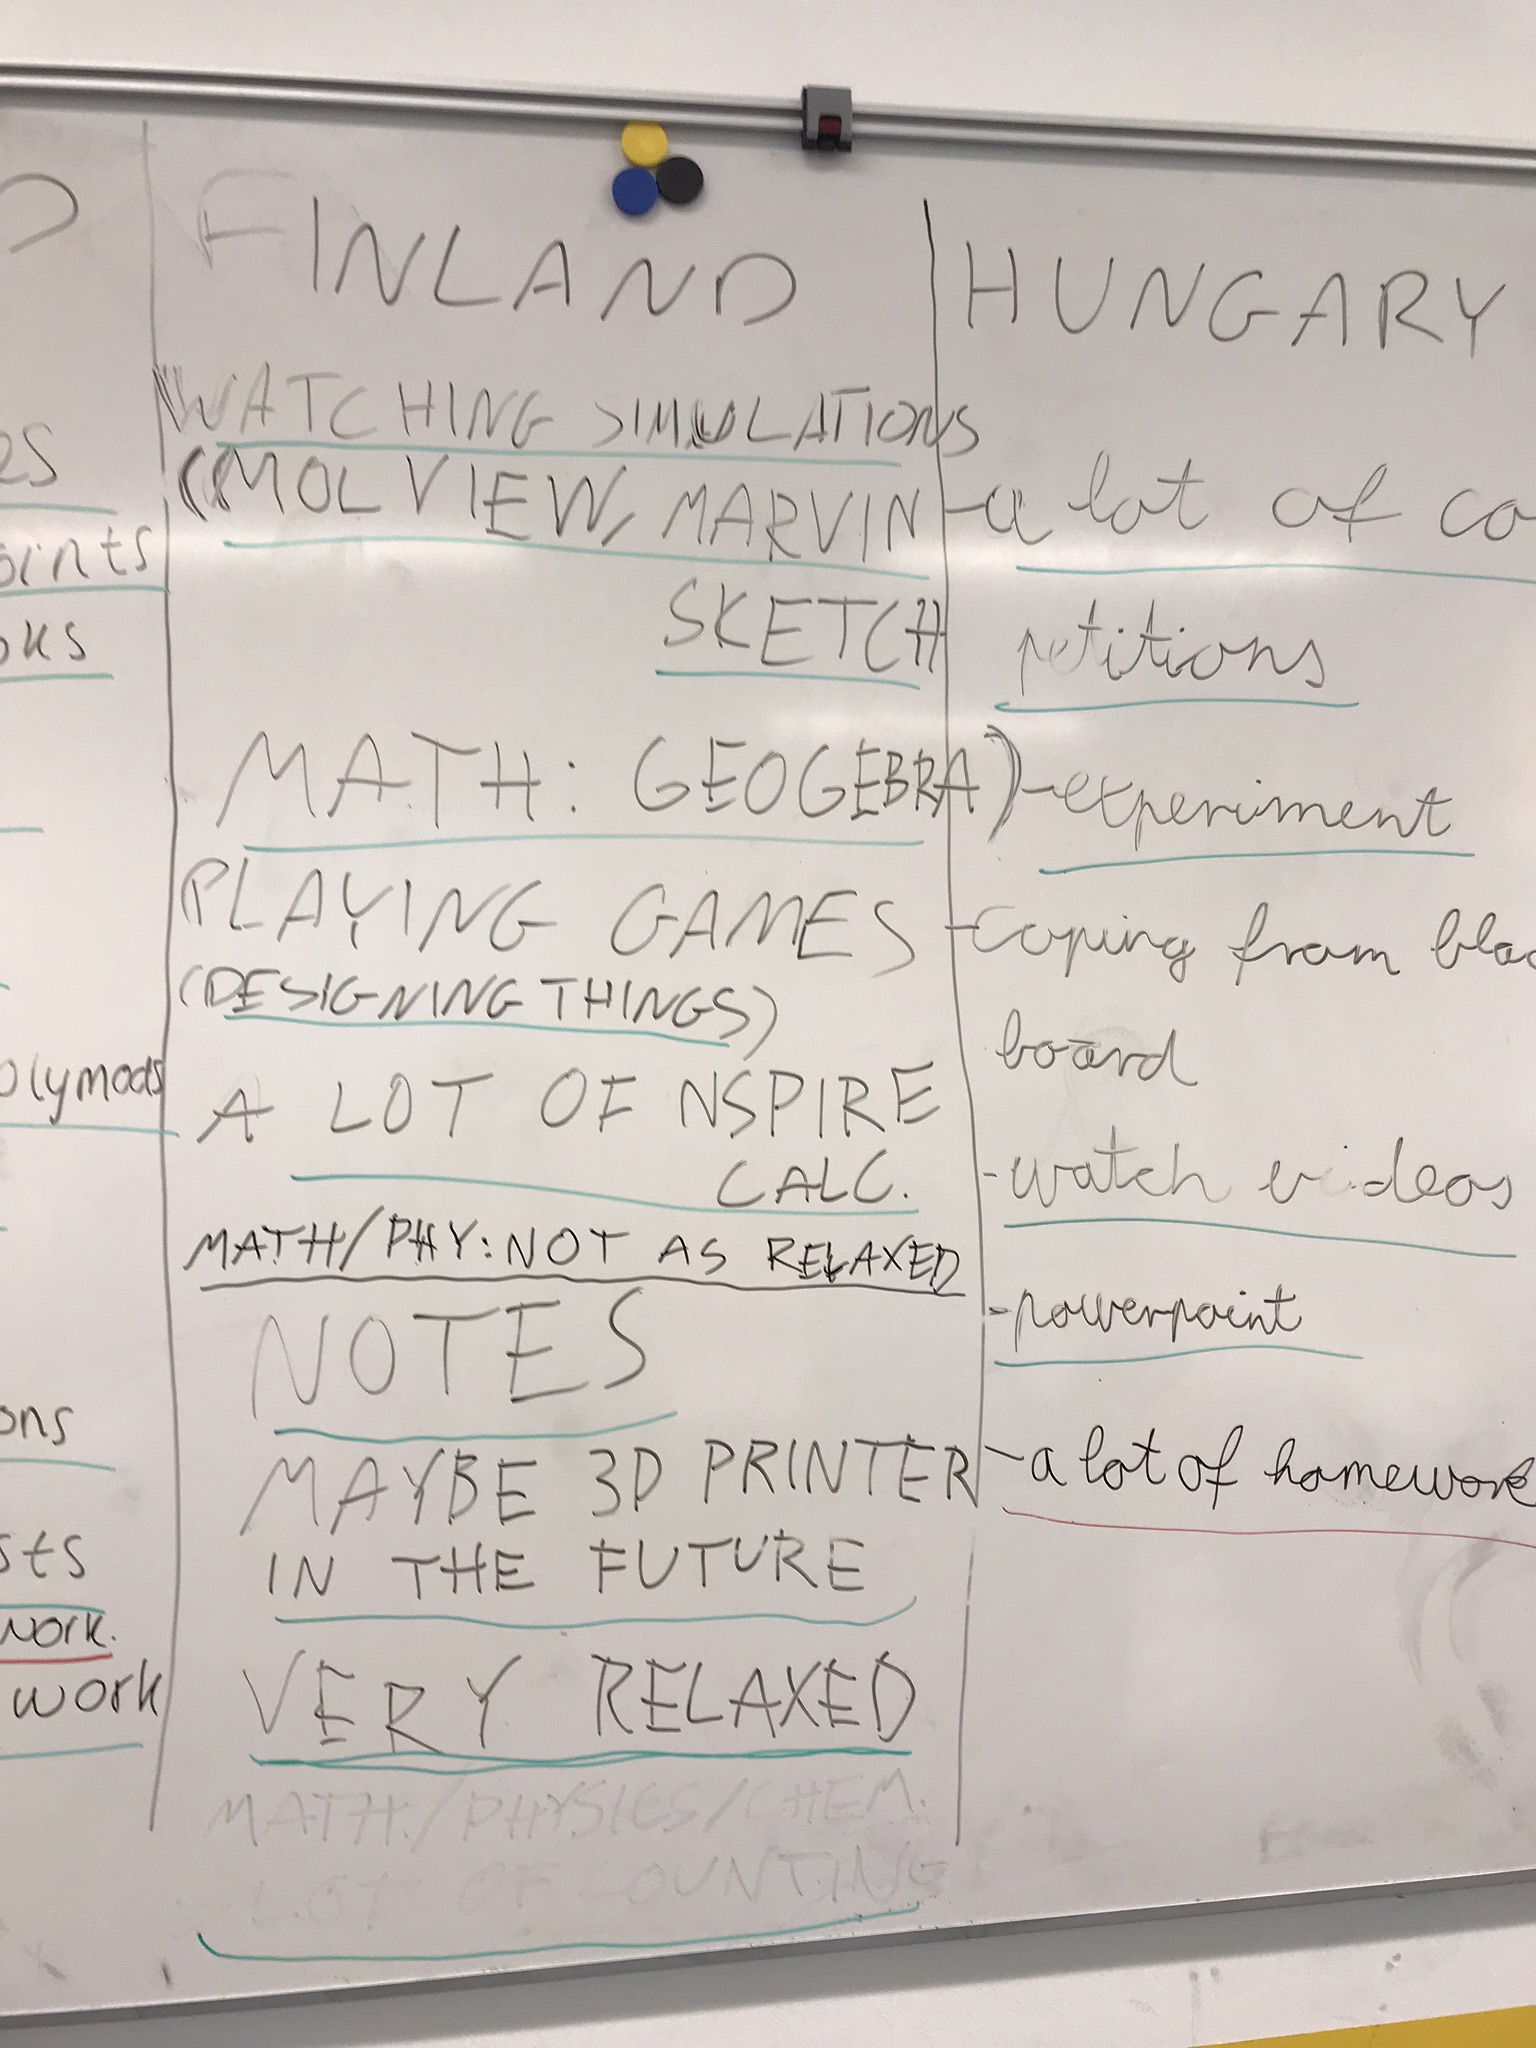 D
es
oints
oks
olymods
ons
sts
work.
work
FINLAND
WATCHING SIMULATIONS
(MOLVIEW, MARVIN
SKETCH
MATH: GEOGEBRA)
PLAYING GAMES
(DESIGNING THINGS)
A LOT OF NSPIRE
CALC.
MATH/PHY: NOT AS RELAXED
NOTES
MAYBE 3D PRINTER
IN THE FUTURE
VERY RELAXED
MATH./PHYSICS/CHEM.
- LOT OF COUNTING
HUNGARY
-a lot of co
petitions
-experiment
-coping from blac
board
-watch videos
-powerpoint
-a lot of homework